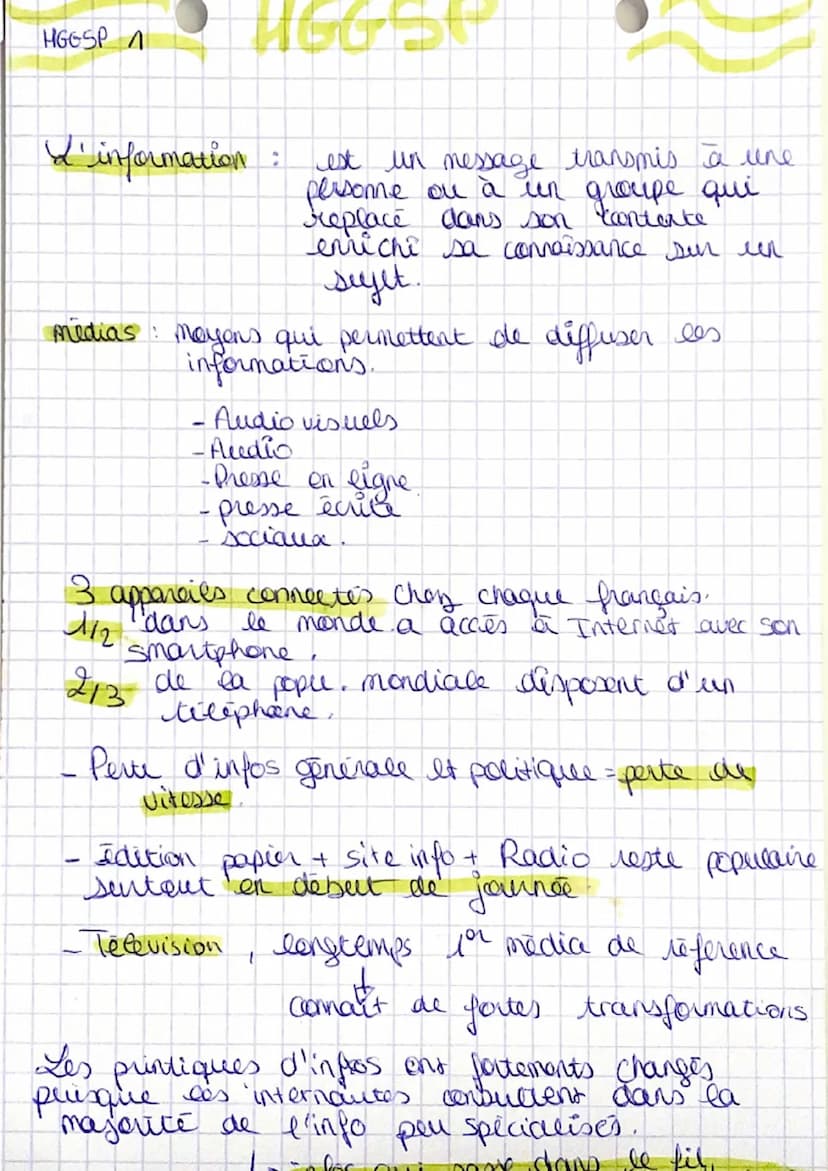 HGGSP
HGGSP 1
L'information : est un message transmis à une
personne ou à un groupe qui
replacé dans son contexte
enrichi sa connaissance sur un
sujet.
médias : moyens qui permettent de diffuser les
informations.
- Audio visuels
- Audio
- Presse en ligne
- presse écrite
- sociaux.
3 appareils connectés chez chaque français.
1/2 dans le monde a accès à Internet avec son
smartphone.
2/3 de la popu. mondiale disposent d'un
téléphone.
- Perte d'infos générale et politique = perte de
vitesse.
- Édition papier + site info + Radio reste populaire
surtout en début de journée.
- Télévision, longtemps 1er média de référence
+
connaît de fortes transformations
Les pratiques d'infos ont fortements changés
puisque les internautes consultent dans la
majorité de l'info peu spécialisés.
qui passe dans le fil,